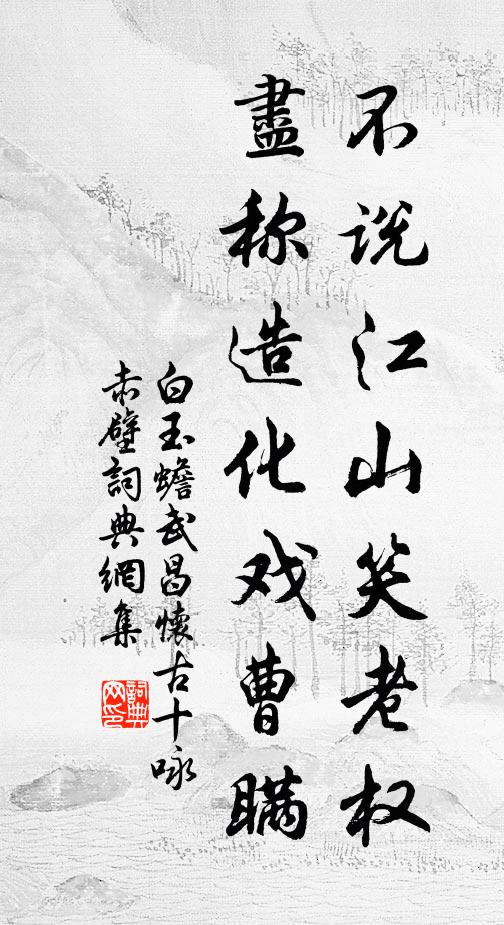 不说江山笑老权
盡称造化戏曹瞒
白玉蟾武昌懷古十咏
赤壁詞典網集
詞典网印